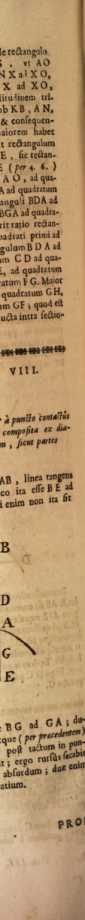 le rectangulo
S, ut AO
N X ad XO,
X ad XO,
litudinem tri-
ob KB, AN,
& consequen-
aiorem habet
t rectangulum
E, sic rectan-
E (per 4. 6.)
A O, ad qua-
A ad quadratum
anguli BDA ad
BGA ad quadra-
rit ratio rectan-
uadrati primi ad
ngulum BDA ad
um CD ad qua-
E, ad quadratum
ratum FG. Maior
quadratum GH,
um GF, quod est
ucta intra sectio-
VIII.
r à puncto contactus
composita ex dia-
m, sicut partes
AB, linea tangens
co ita esse BE ad
i enim non ita sit
B
D
A
G
E
e BG ad GA; du-
eque (per præcedentem)
post tactum in pun-
t; ergo rursus secabit
absurdum; duæ enim
atium.
PRO